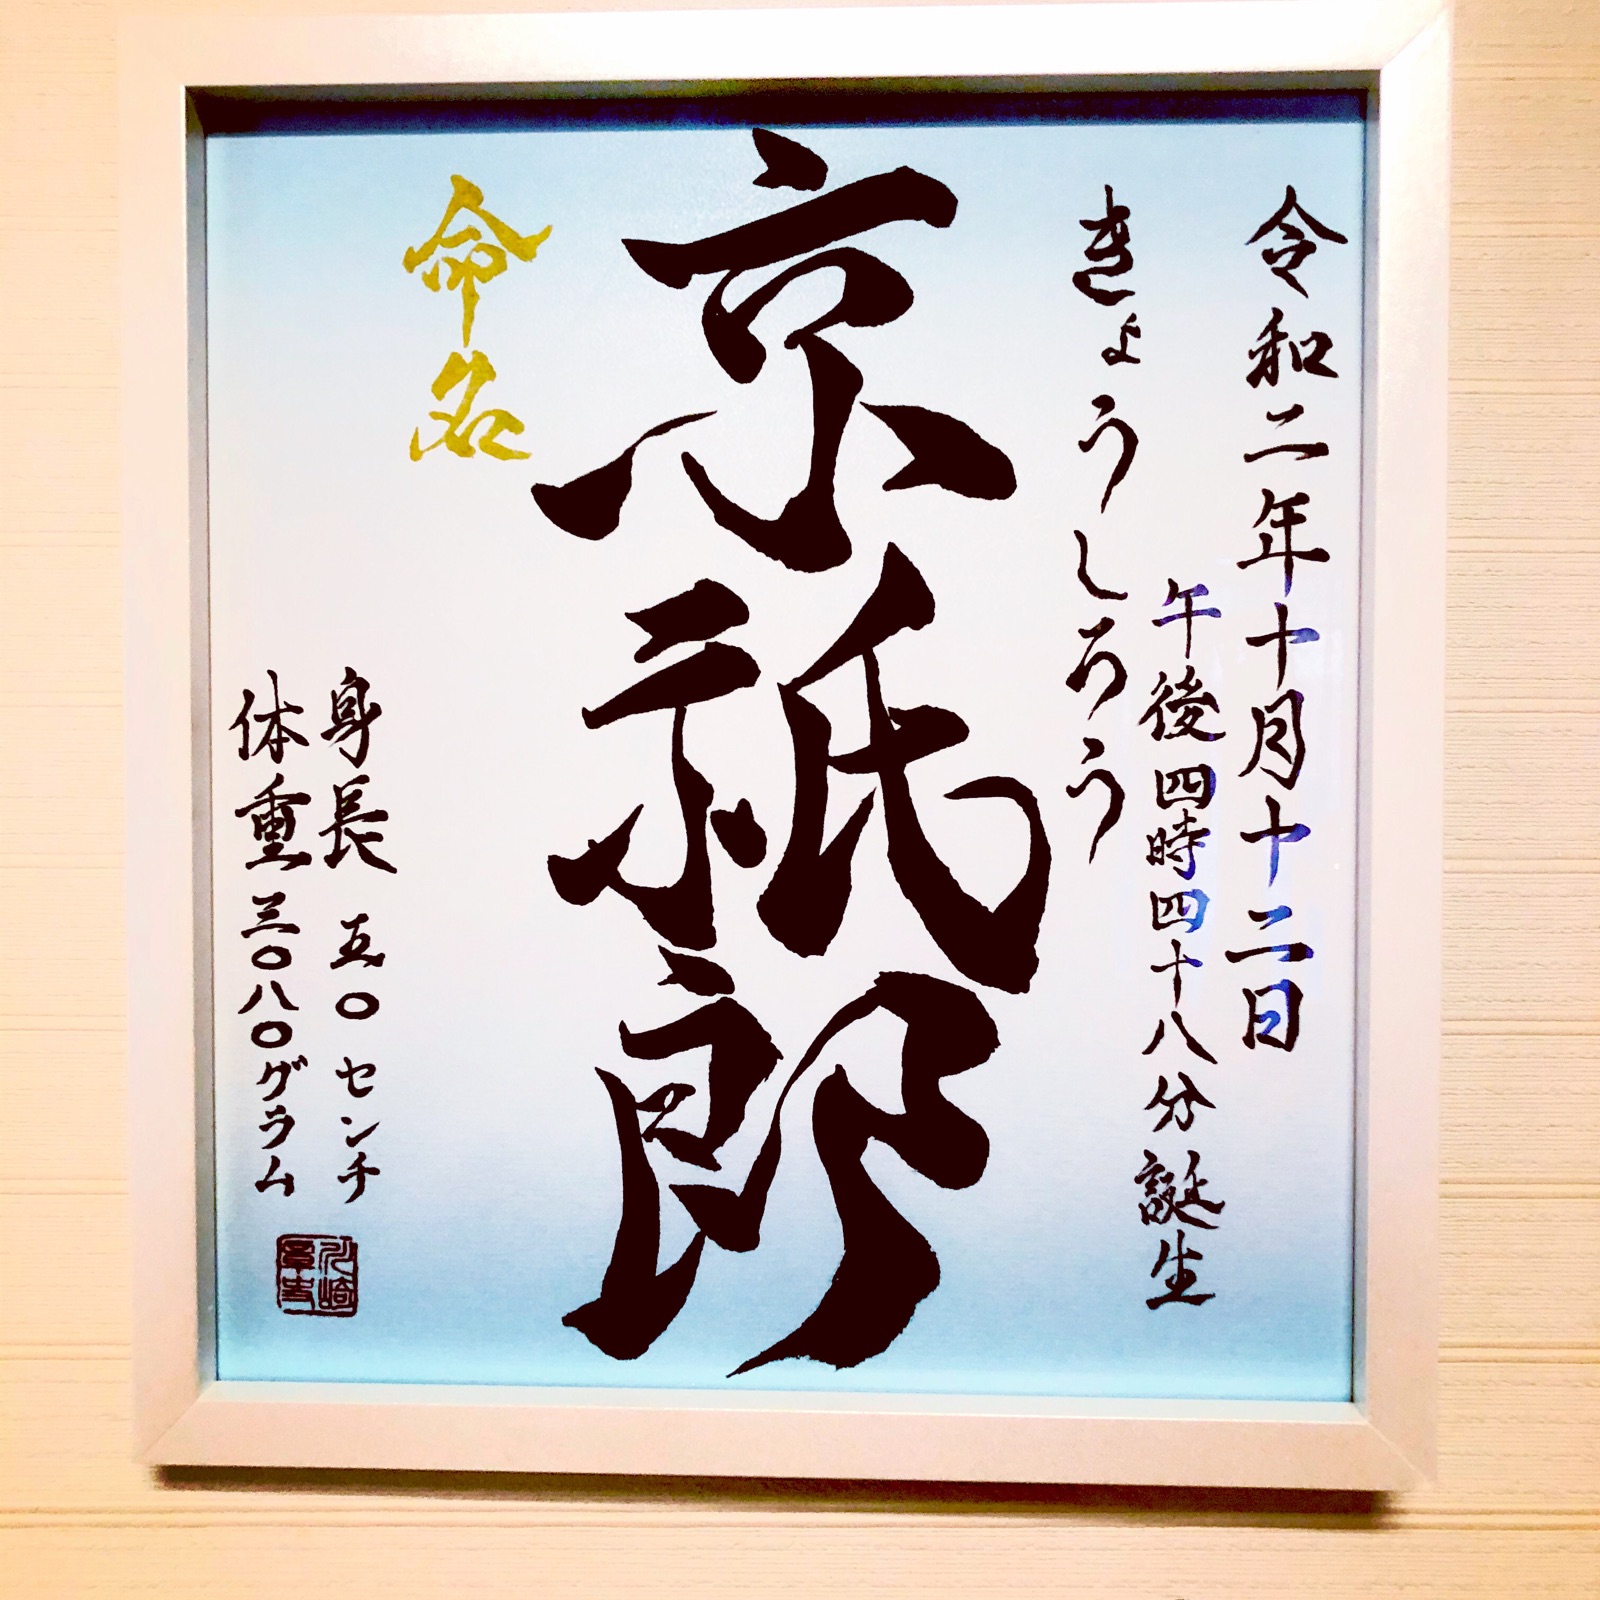 令和二年十月十二日
午後四時四十八分誕生
きょうしろう
京祇郎
命名
身長 五〇センチ
体重三〇八〇グラム